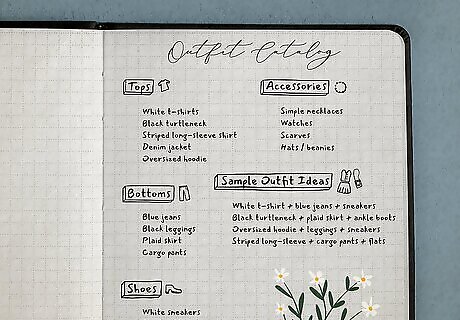 Outfit Catalog
Tops
White t-shirts
Black turtleneck
Striped long-sleeve shirt
Denim jacket
Oversized hoodie
Accessories
Simple necklaces
Watches
Scarves
Hats / beanies
Bottoms
Blue jeans
Black leggings
Plaid skirt
Cargo pants
Sample Outfit Ideas
White t-shirt + blue jeans + sneakers
Black turtleneck + plaid skirt + ankle boots
Oversized hoodie + leggings + sneakers
Striped long-sleeve + cargo pants + flats
Shoes
White sneakers